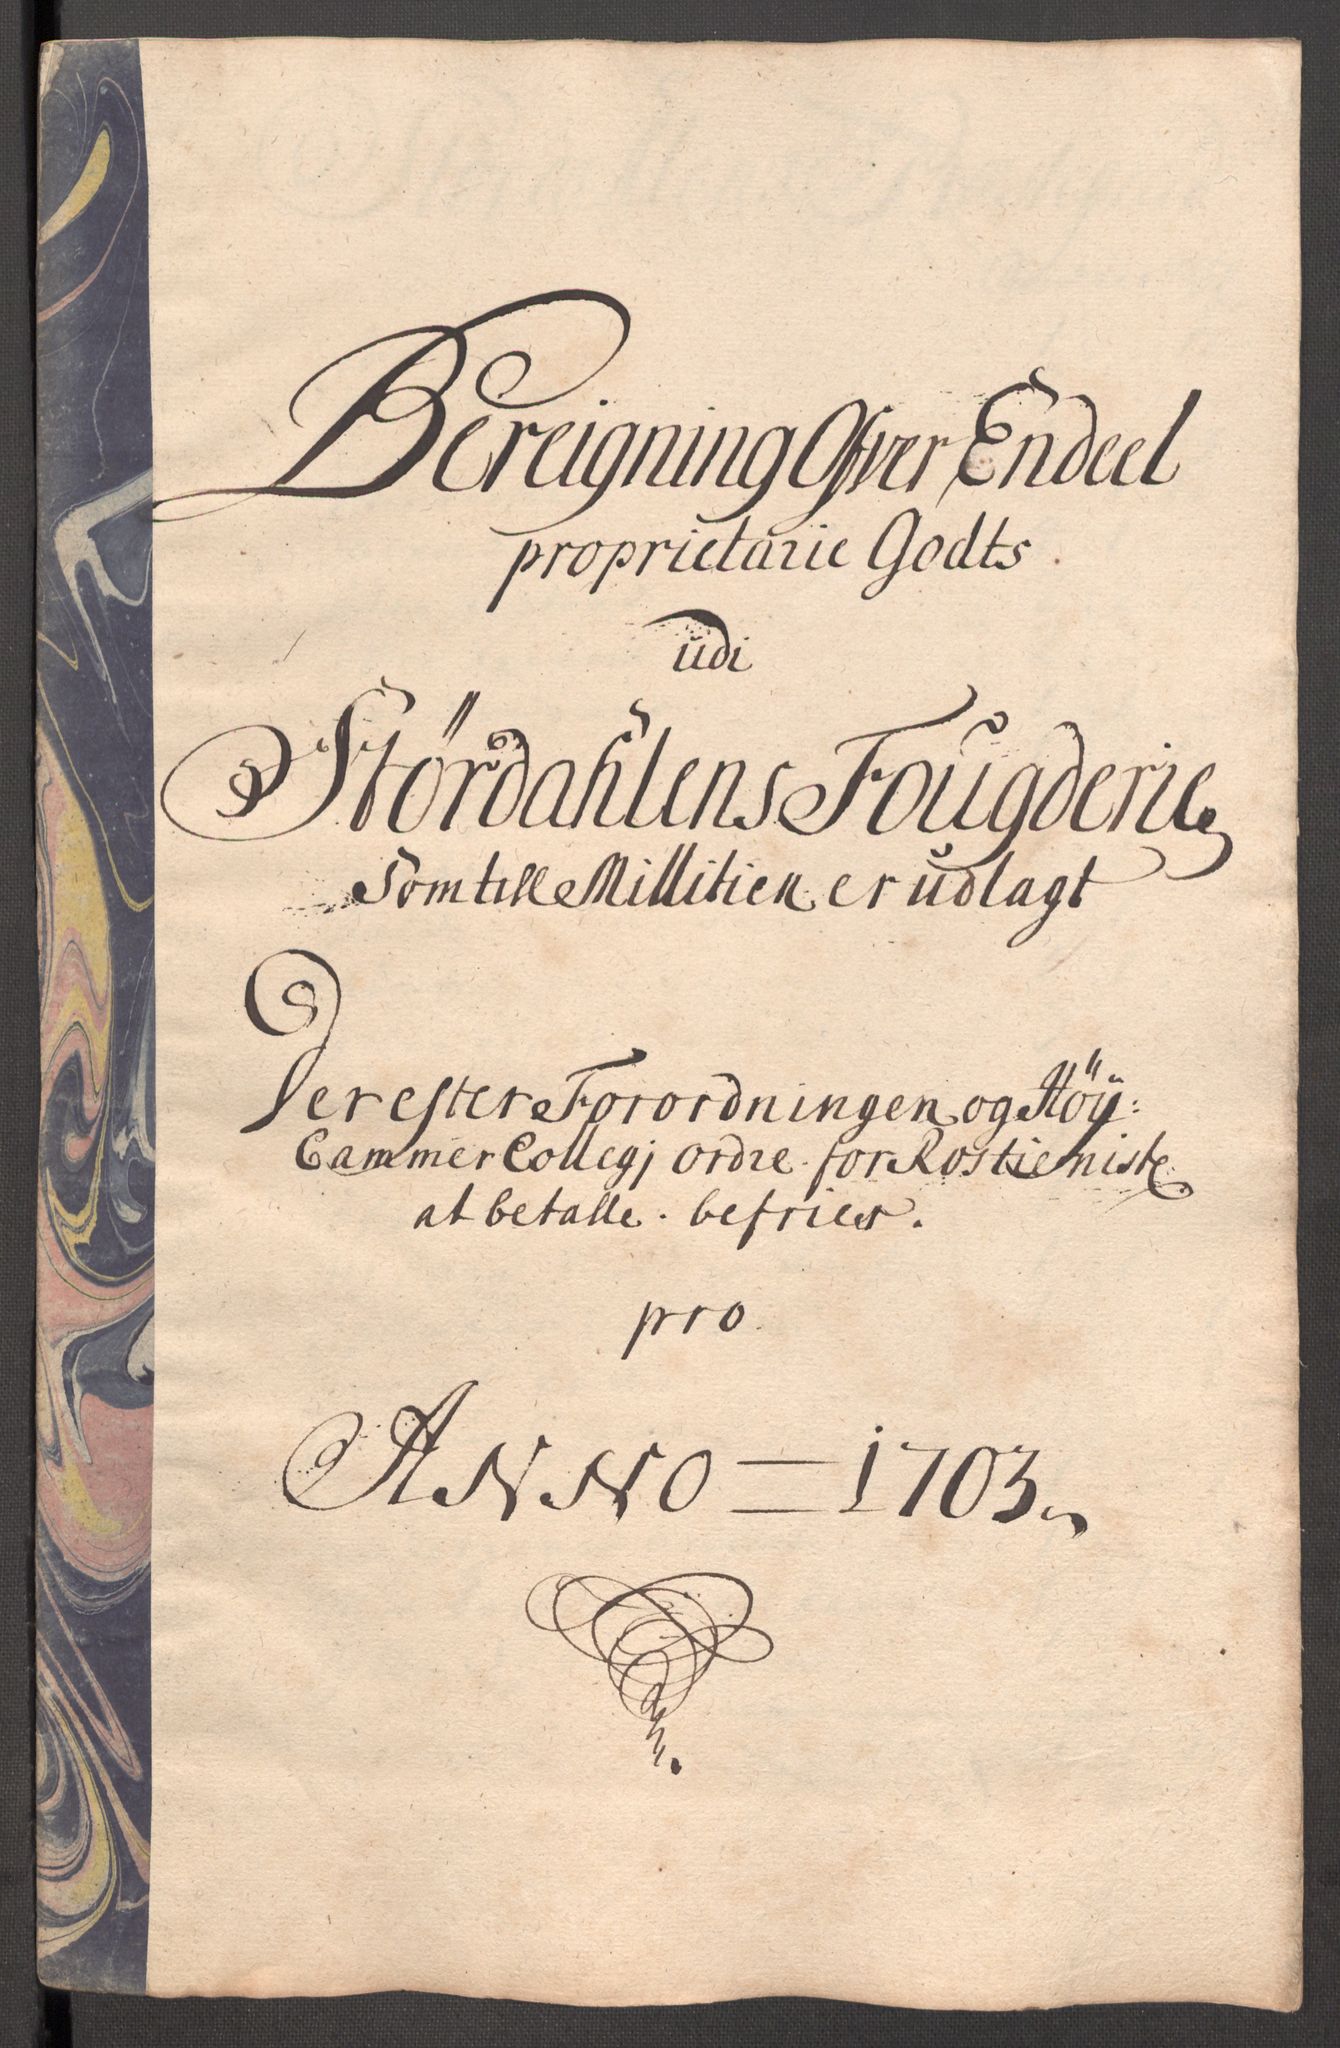 Bereigning Ofver Endeel
proprietarie Godts
udi
Stördahlens Fougderie
Som till Millitien er udlagt
Der efter Forordningen og Höÿ:
Cammer Collegj ordre for Rostieniste
at betalle. befries.
pro
ANNO = 1703